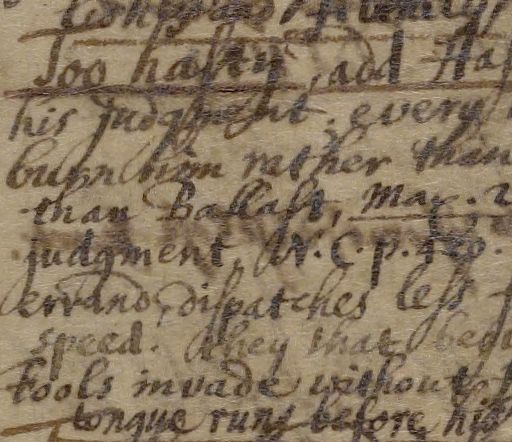 Too hasty, add Has
his judgment; every
burn him rather than
than Ballast, Max. 2
judgment, N. C. p. 120.
errand, dispatches less
speed. they that beg
Fools invade without
tongue runs before his